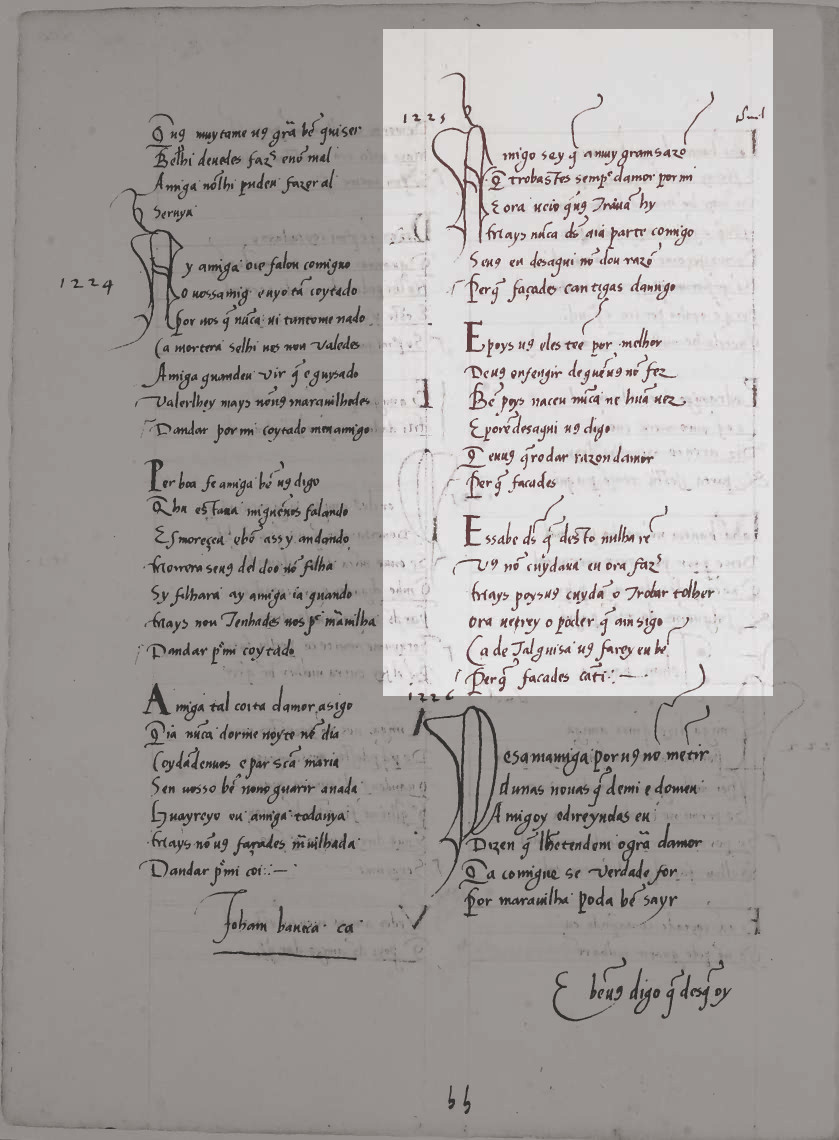 Q̃ uꝯ muytame uꝯ grã bẽ quiser
Belhi deuedes fazs enõ mal
Amiga nõlhi puden fazer al
Seruya
1224
Ay amiga oie falou comigno
O uossamig euyo tã coytado
Por uos q̃ nũca ui tantome nado
Ca morrera selhi uos non ualedes
Amiga quandeu vir q̃ e guysado
Valerlhey mays nõuꝯ marauilhedes
Dandar por mi coytado meuamigo
Per boa fe amiga bẽ uꝯ digo
Qhu estaua migu enos falando
Esmoreçeu ebẽ assy andando
Morrera seuꝯ del doo nõ filha
Sy filhara ay amiga ia quando
Mays non Tenhades uos pr mauilha
Dandar pmi coytado
Amiga tal coita damor a sigo
Q̃ia nũca dorme noyte nẽ dia
Coydãdenuos e par scã maria
Sen uosso bẽ nono guarir anada
Guayreyo eu amiga todauya
Mays nõ uꝯ façades muilhada
Dandar pmi coi:—
Joham baueca ca
1225
Amigo sey q̃ a muy gram sazõ
Q̃ trobastes sempr damor por mi
E ora ueio q̃uꝯ Trauã hy
Mays nũca ds̃ aia parte comigo
Seuꝯ eu desaqui nõ dou razõ
Perq̃ façades cantigas damigo
E poys uꝯ eles teẽ por melhor
Deuꝯ enfengir de quẽ uꝯ nõ fez
Bẽ poys naceu nũca nẽ hũa uez
E porẽ desaqui uꝯ digo
Q̃ euuꝯ q̃ro dar razon damor
Perq̃ facades
E ssabe ds̃ q̃ desto nulha rẽ
Vꝯ nõ cuydaua eu ora fazs
Mays poysuꝯ cuydã o Trobar tolher
Ora ueerey o poder q̃ am sigo
Ca de Talguisa uꝯ farey eu bẽ
Perq̃ facades cãti:—
1226
Pesamamiga por uꝯ nõ mẽtir
Dunas nouas q̃ demi e domeu
Amigoy odireyuolas eu
Dizen q̃ lhẽtendem o grã damor
Q̃ a comigue se verdade for
Por marauilha poda bẽ sayr
E bẽ uꝯ digo q̃ desq̃ oy